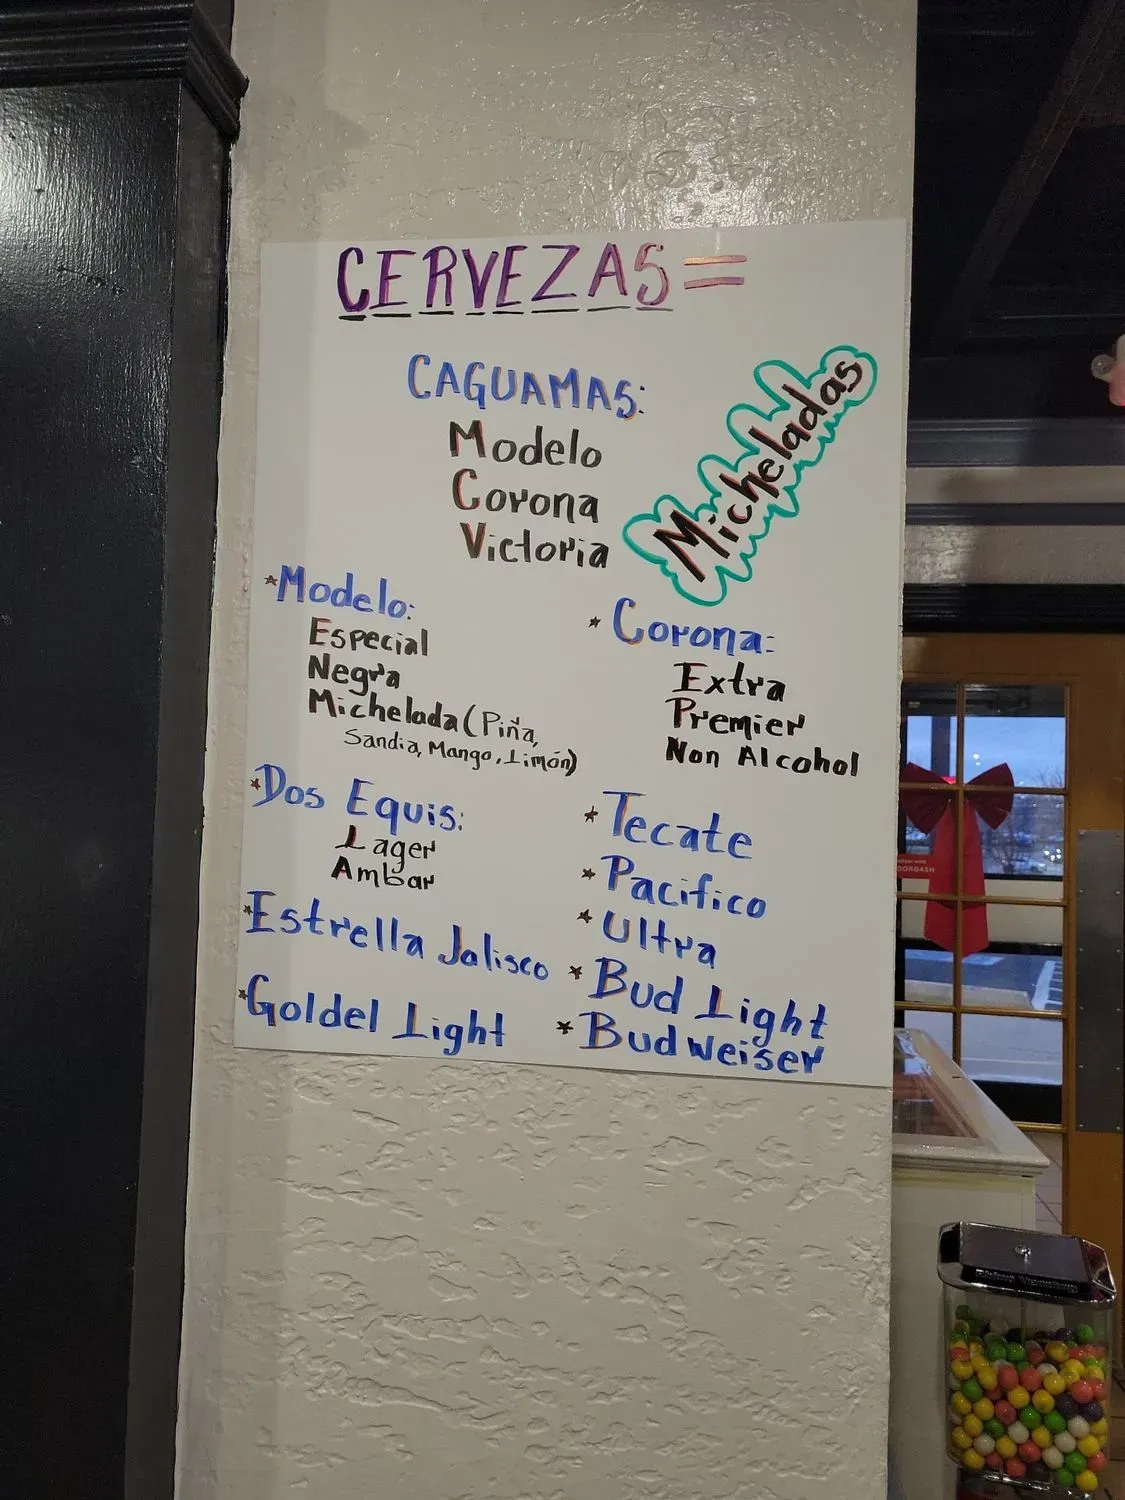 CERVEZAS=
CAGUAMAS:
Modelo
Corona
Victoria
Micheladas
*Modelo:
Especial
Negra
Michelada (Piña,
Sandia, Mango, Limón)
*Dos Equis:
Lager
Ambar
*Estrella Jalisco
*Goldel Light
*Corona:
Extra
Premier
Non Alcohol
*Tecate
*Pacifico
*Ultra
*Bud Light
*Budweiser